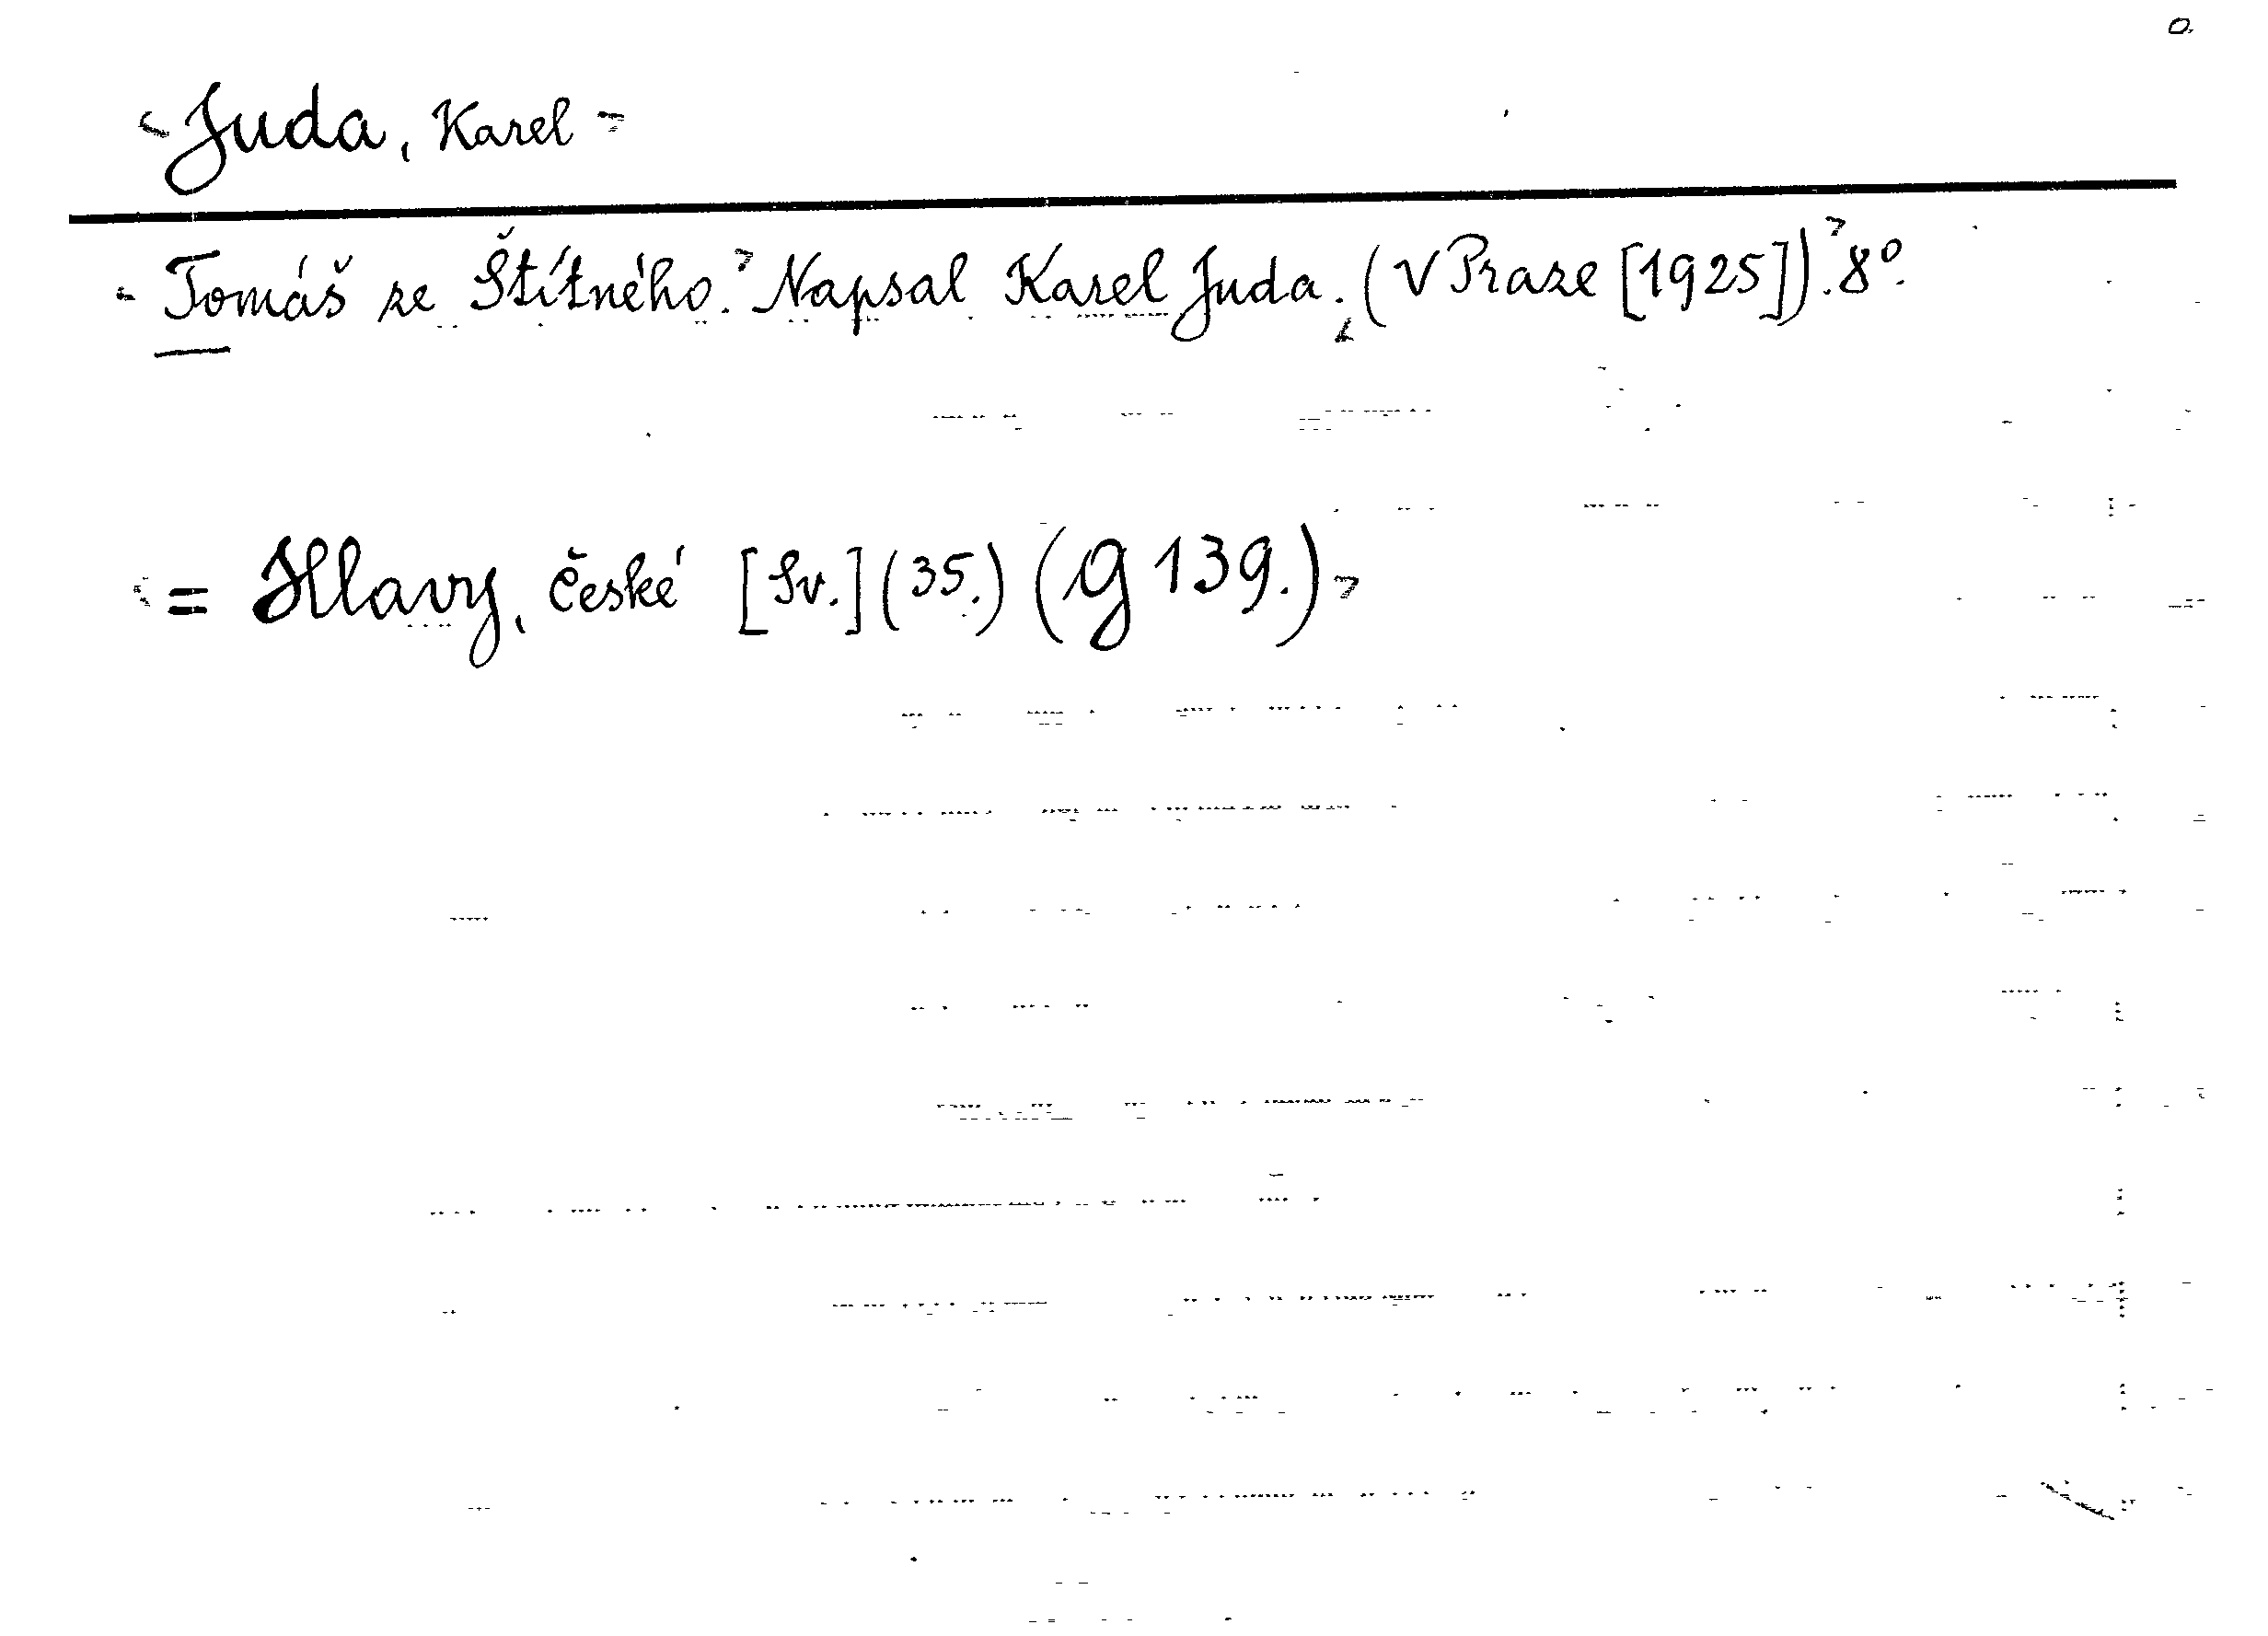 o.
Juda, Karel
Tomáš ze Štítného. Napsal Karel Juda. (V Praze [1925]). 8°.
= Hlavy, české [Sv.] (35.) (G 139.)